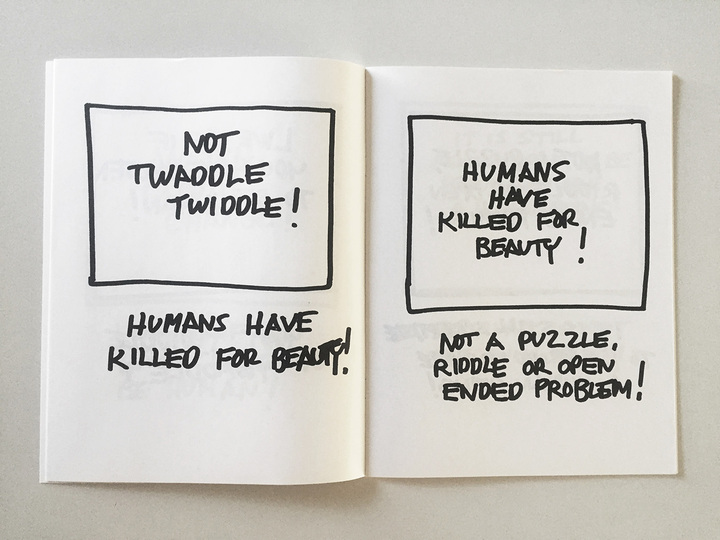 NOT
TWADDLE
TWIDDLE!
HUMANS HAVE
KILLED FOR BEAUTY!
HUMANS
HAVE
KILLED FOR
BEAUTY!
NOT A PUZZLE,
RIDDLE OR OPEN
ENDED PROBLEM!